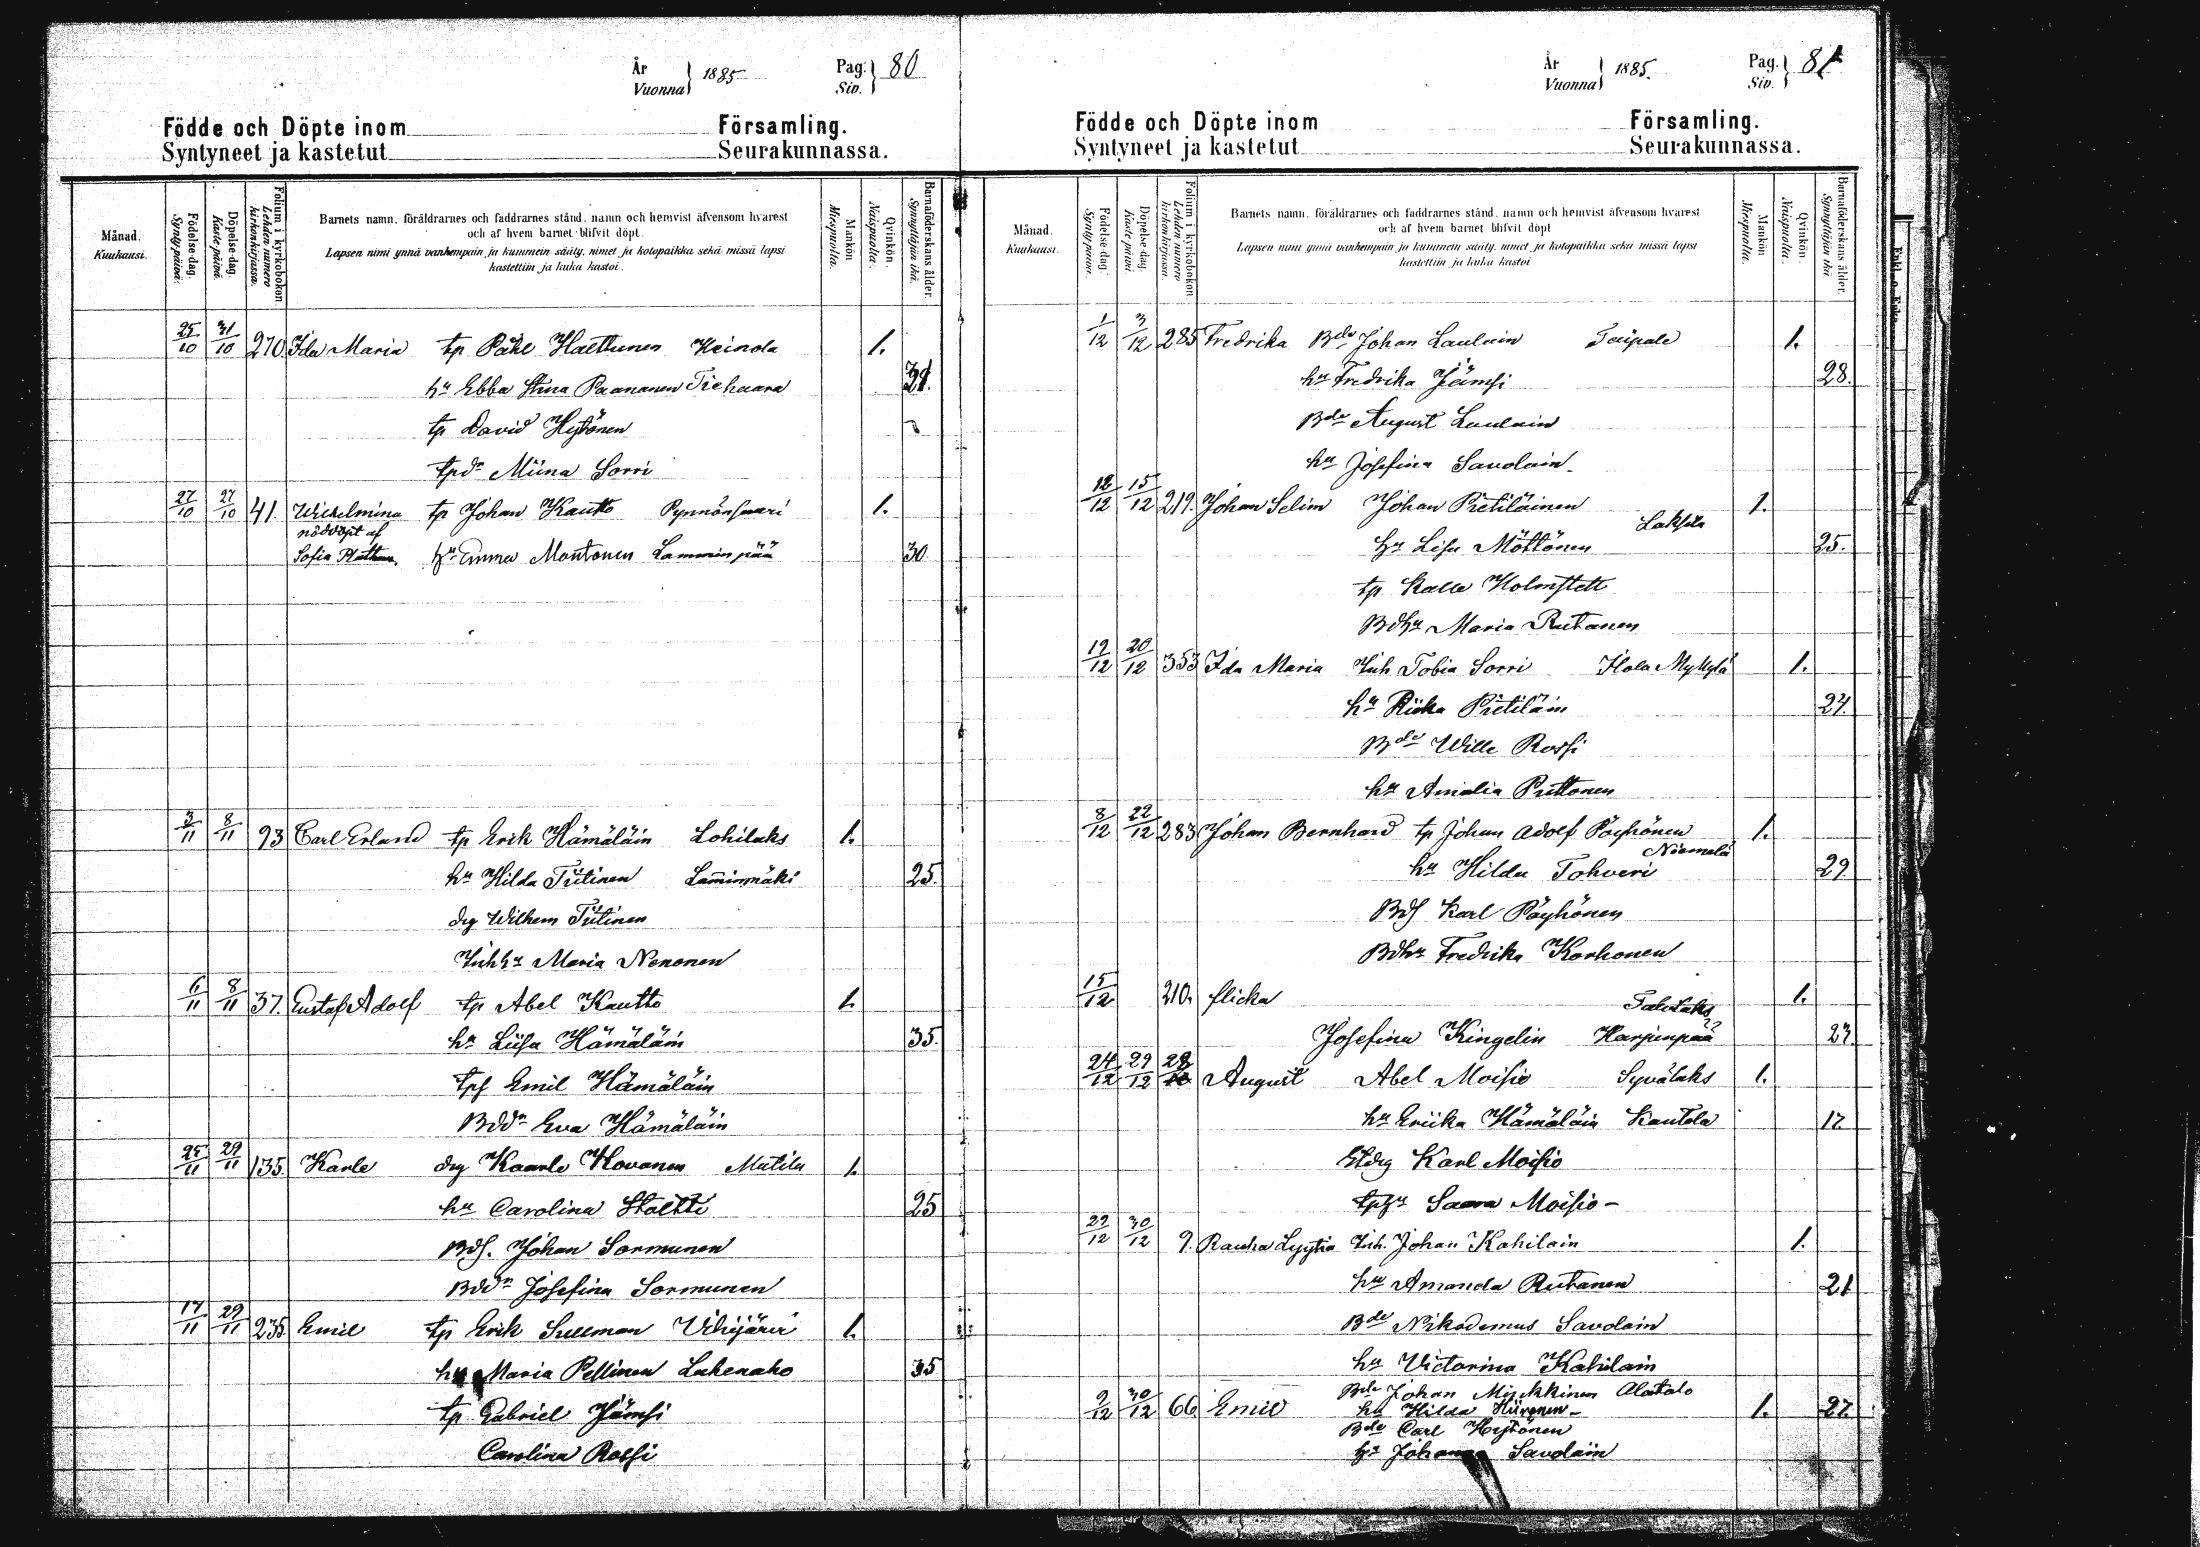 År
Vuonna 1885
Pag. 80
Siv.
Födde och Döpte inom Församling.
Syntyneet ja kastetut Seurakunnassa.
Månad.
Kuukausi.
Födelse-dag.
Syntypäivä.
Döpelse-dag.
Kaste päivä.
Folium i kyrkobokon
Lehden numero kirkonkirjassa.
Barnets namn, föräldrarnes och faddrarnes stånd, namn och hemvist äfvensom hvarest
och af hvem barnet blifvit döpt.
Lapsen nimi ynnä vanhempain ja kummein sääty, nimet ja kotopaikka sekä missä lapsi
kastettiin ja kuka kastoi.
Mankön
Miespuolta.
Qvinkön.
Naispuolta.
Barnaföderskans ålder.
Synnyttäjän ikä.
25/10 31/10 270. Ida Maria tp Påhl Haettunen Heinola 1.
hu Ebba Stina Paananen Tiehaara
tp David Hytönen
tpdr Miina Sorri
27/10 27/10 41. Wilhelmina tp Johan Kautto Pynnönsaari 1.
nöddöpt af
Sofia hu Emma Montonen Lamminpää 30
3/11 8/11 93 Carl Erland tp Erik Hämäläin Lohilaks 1.
hu Hilda Tiitinen Lamminmäki 25.
drg Wilhem Tiitinen
Inhhu Maria Nenonen
6/11 8/11 37. Gustaf Adolf tp Abel Kautto 1.
hu Liisa Hämäläin 35.
tps Emil Hämäläin
Bddr Eva Hämäläin
25/11 29/11 135. Karle drg Kaarle Hovanen Mutila 1.
hu Carolina Stoltti 25
Bds. Johan Sormunen
Bddr Josefina Sormunen
17/11 29/11 235. Emil tp Erik Sullman Vihijärvi 1.
hu Maria Pellinen Lahenaho 35
tp Gabriel Jämsi
Carolina Rossi
År
Vuonna 1885.
Pag. 81
Siv.
Födde och Döpte inom Församling.
Syntyneet ja kastetut Seurakunnassa.
Månad.
Kuukausi.
Födelse-dag.
Syntypäivä.
Döpelse-dag.
Kaste päivä.
Folium i kyrkobokon
Lehden numero kirkonkirjassa.
Barnets namn, föräldrarnes och faddrarnes stånd, namn och hemvist äfvensom hvarest
och af hvem barnet blifvit döpt
Lapsen nimi ynnä vanhempain ja kummein sääty, nimet ja kotopaikka sekä missä lapsi
kastettiin ja kuka kastoi.
Mankön
Miespuolta.
Qvinkön.
Naispuolta.
Barnaföderskans ålder.
Synnyttäjän ikä
1/12 3/12 285 Fredrika Bde Johan Laulain Taipale 1.
hu Fredrika Jämsi 28.
Bde August Laulain
hu Josefina Savolain
12/12 15/12 219. Johan Selim Johan Pietiläinen 1.
Laksela
hu Lisa Möttönen 25.
tp Kalle Holmstett
Bdhu Maria Rutanen
19/12 20/12 353 Ida Maria Inh Tobia Sorri Hola Mykylä 1.
hu Riika Pietiläin 24.
Bde Wille Rossi
hu Amalia Puttonen
8/12 22/12 283 Johan Bernhard tp Johan Adolf Pöyhönen 1.
Niemelä
hu Hilda Tohveri 29
Bds Karl Pöyhönen
Bdhu Fredrika Korhonen
15/12 210. flicka 1.
Josefina Kingelin Harjunpää 23.
24/12 29/12 August Abel Moisio Syvälaks 1.
hu Eriika Hämäläin Kautola
Stdrg Karl Moisio
tphu Saara Moisio -
22/12 30/12 9. Rauha Lyytia Inh. Johan Kahilain 1.
hu Amanda Rutanen 21
Bde Nikodemus Savolain
hu Victorina Kahilain
Bde Johan Minkkinen Alatalo
9/12 30/12 66 Emil hu Hilda Hiironen - 1. 27.
Bde Carl Hytönen
hu Johanna Savolain